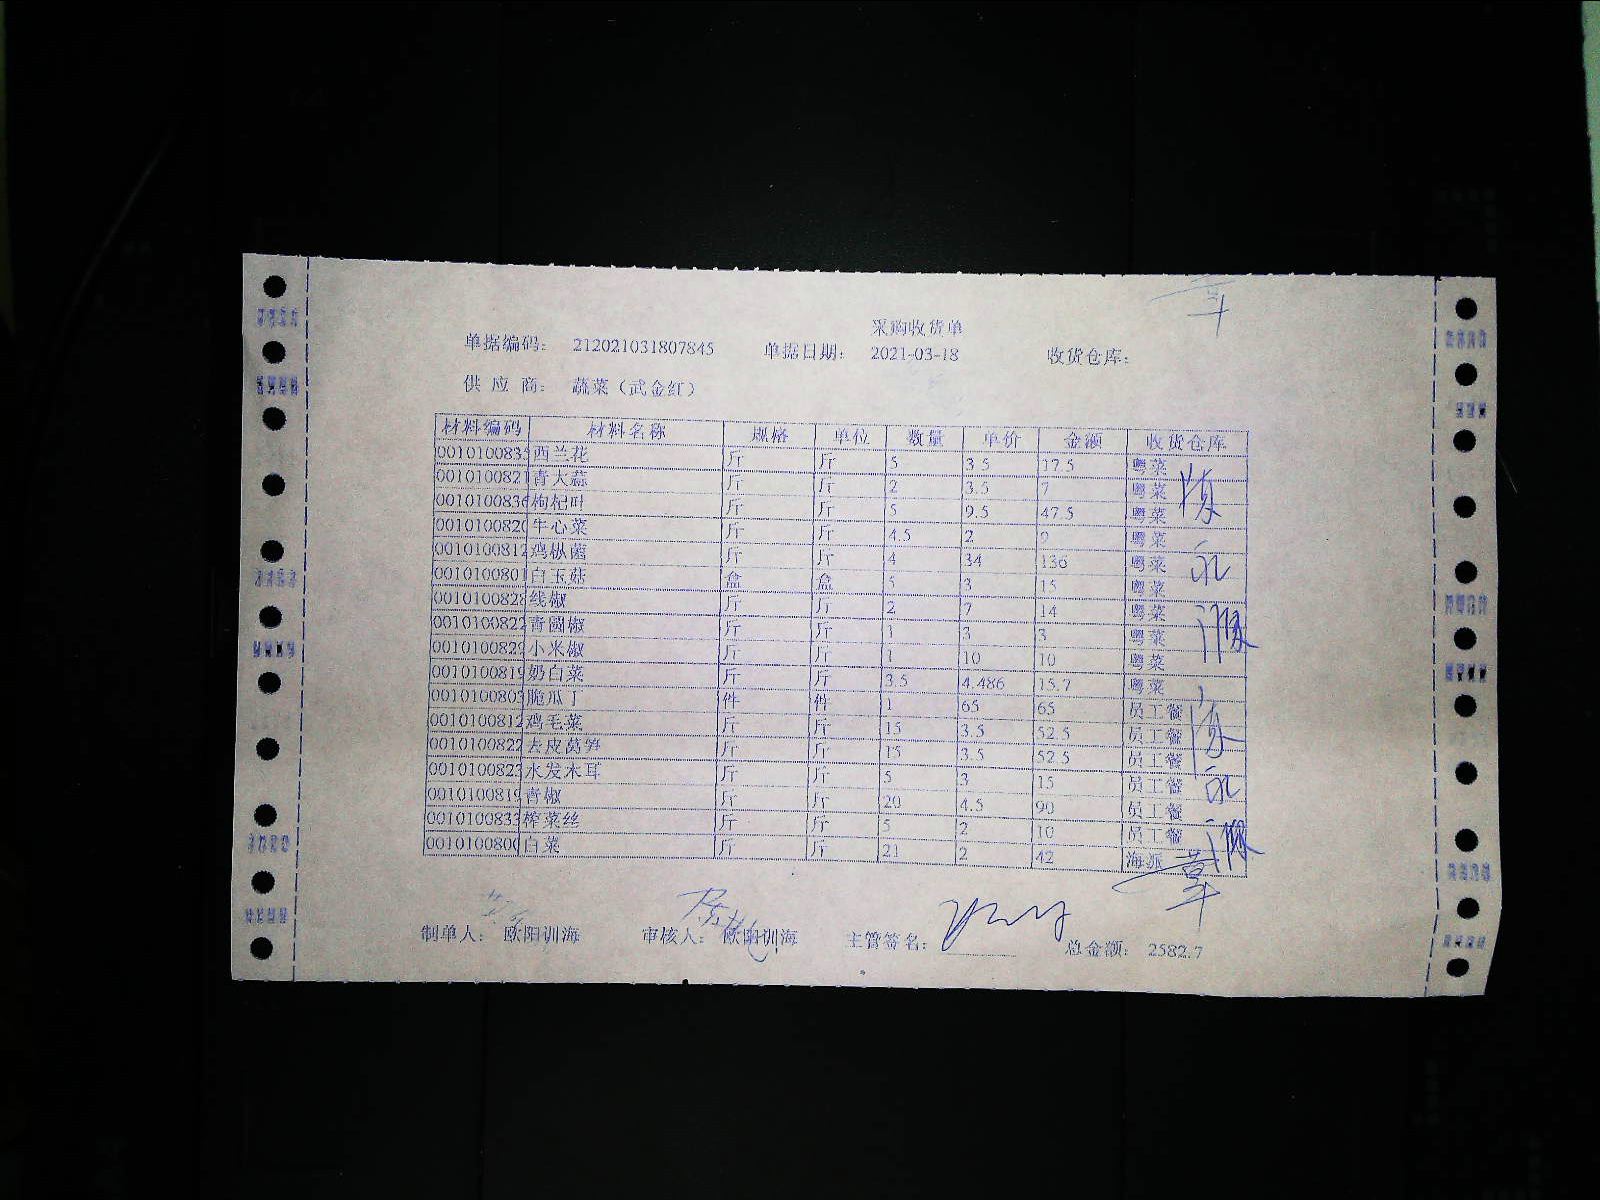 采购收货单
单据编码： 212021031807845 单据日期： 2021-03-18 收货仓库：
供 应 商： 蔬菜（武金红）
材料编码 材料名称 规格 单位 数量 单价 金额 收货仓库
0010100833 西兰花 斤 斤 5 3.5 17.5 粤菜
0010100821 青大蒜 斤 斤 2 3.5 7 粤菜
0010100836 枸杞叶 斤 斤 5 9.5 47.5 粤菜
0010100820 牛心菜 斤 斤 4.5 2 9 粤菜
0010100812 鸡枞菌 斤 斤 4 34 136 粤菜
0010100801 白玉菇 盒 盒 5 3 15 粤菜
0010100828 线椒 斤 斤 2 7 14 粤菜
0010100822 青圆椒 斤 斤 1 3 3 粤菜
0010100829 小米椒 斤 斤 1 10 10 粤菜
0010100819 奶白菜 斤 斤 3.5 4.486 15.7 粤菜
0010100805 脆瓜丁 件 件 1 65 65 员工餐
0010100812 鸡毛菜 斤 斤 15 3.5 52.5 员工餐
0010100822 去皮莴笋 斤 斤 15 3.5 52.5 员工餐
0010100823 水发木耳 斤 斤 5 3 15 员工餐
0010100819 青椒 斤 斤 20 4.5 90 员工餐
0010100833 榨菜丝 斤 斤 5 2 10 员工餐
0010100800 白菜 斤 斤 21 2 42 海派
制单人： 欧阳训海 审核人： 欧阳训海 主管签名： 总金额： 2582.7